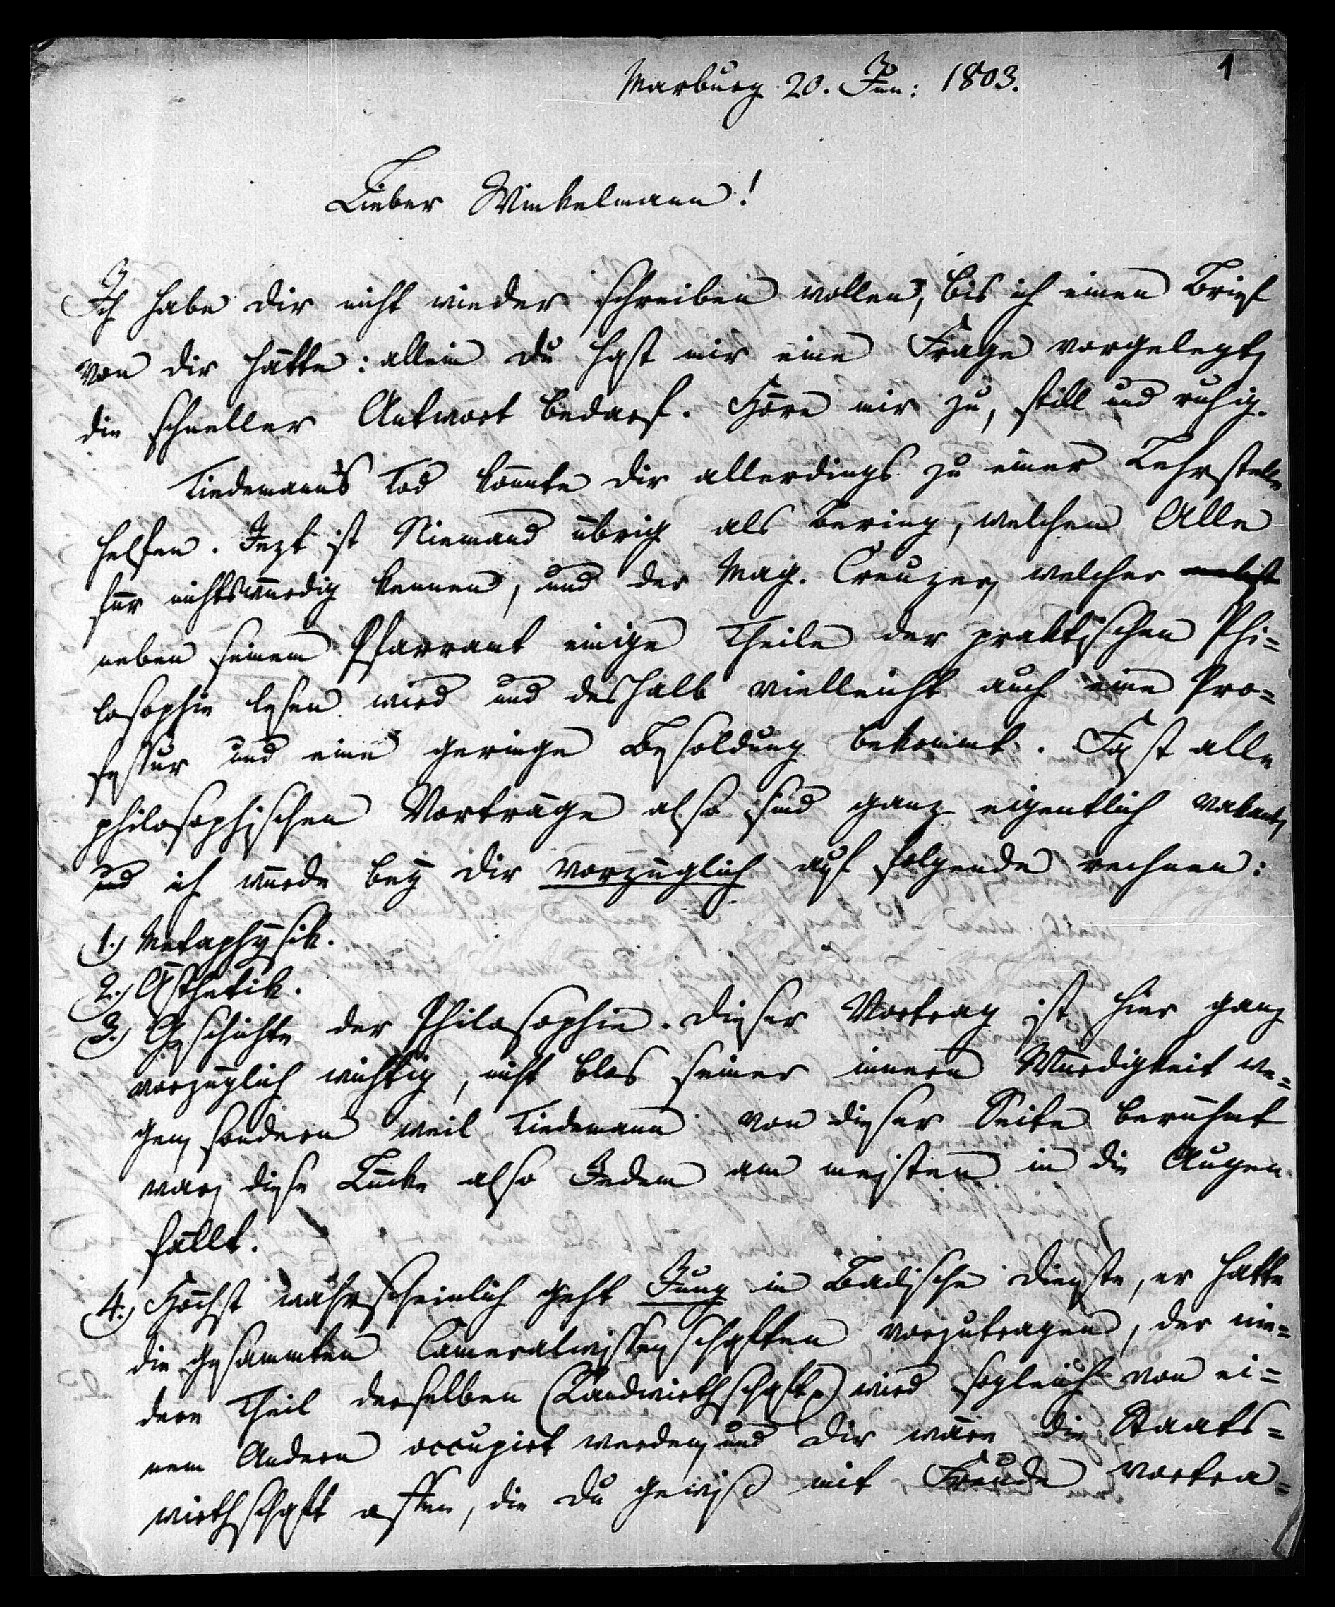 1
Marburg 20. Jun: 1803.
Lieber Winkelmann!
Ich habe dir nicht wieder schreiben wollen, bis ich einen Brief
von dir hätte: allein du hast mir eine Frage vorgelegt,
die schneller Antwort bedarf. Höre mir zu, still und ruhig.
Tiedemann's Tod könnte dir allerdings zu einer Lehrstelle
helfen. Jezt ist Niemand übrig als Bering, welchen Alle
für nichtswürdig kennen, und der Mag. Creuzer, welcher
neben seinem Pfarramt einige Theile der praktischen Phi=
losophie lesen wird und deshalb vielleicht auch eine Pro=
fessur und eine geringe Besoldung bekommt. Fast alle
philosophischen Vorträge also sind ganz eigentlich vakant,
und ich würde bey dir vorzüglich auf folgende rechnen:
1.) Metaphysik.
2.) Ästhetik.
3.) Geschichte der Philosophie. Dieser Vortrag ist hier ganz
vorzüglich wichtig, nicht blos seiner innern Würdigkeit we=
gen, sondern weil Tiedemann von dieser Seite berühmt
war, diese Lücke also Jedem am meisten in die Augen
fällt.
4.) Höchst wahrscheinlich geht Jung in Badische Dienste, er hatte
die gesammten Cameralwissenschaften vorzutragen, der nie=
dere Theil derselben (Landwirthschaft) wird sogleich von ei=
nem Andern occupirt werden, und dir wäre die Staats=
wirthschaft offen, die du gewiß mit Freude vortra=